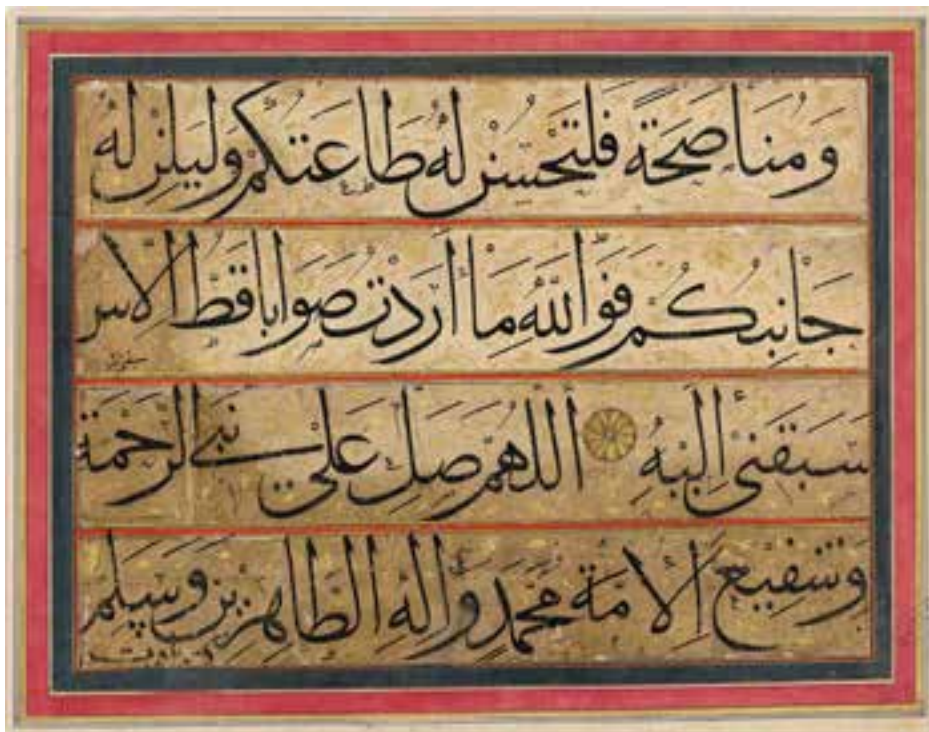 وَمُنَاصَحَةً فَلْتَحْسُنْ لَهُ طَاعَتُكُمْ وَلْيَلِنْ لَهُ
جَانِبُكُمْ فَوَاللَّهِ مَا أَرَدْتُ صَوَابًا قَطُّ إِلَّا
سَبَقَنِي إِلَيْهِ اللَّهُمَّ صَلِّ عَلَى نَبِيِّ الرَّحْمَةِ
وَشَفِيعِ الْأُمَّةِ مُحَمَّدٍ وَآلِهِ الطَّاهِرِينَ وَسَلِّمْ